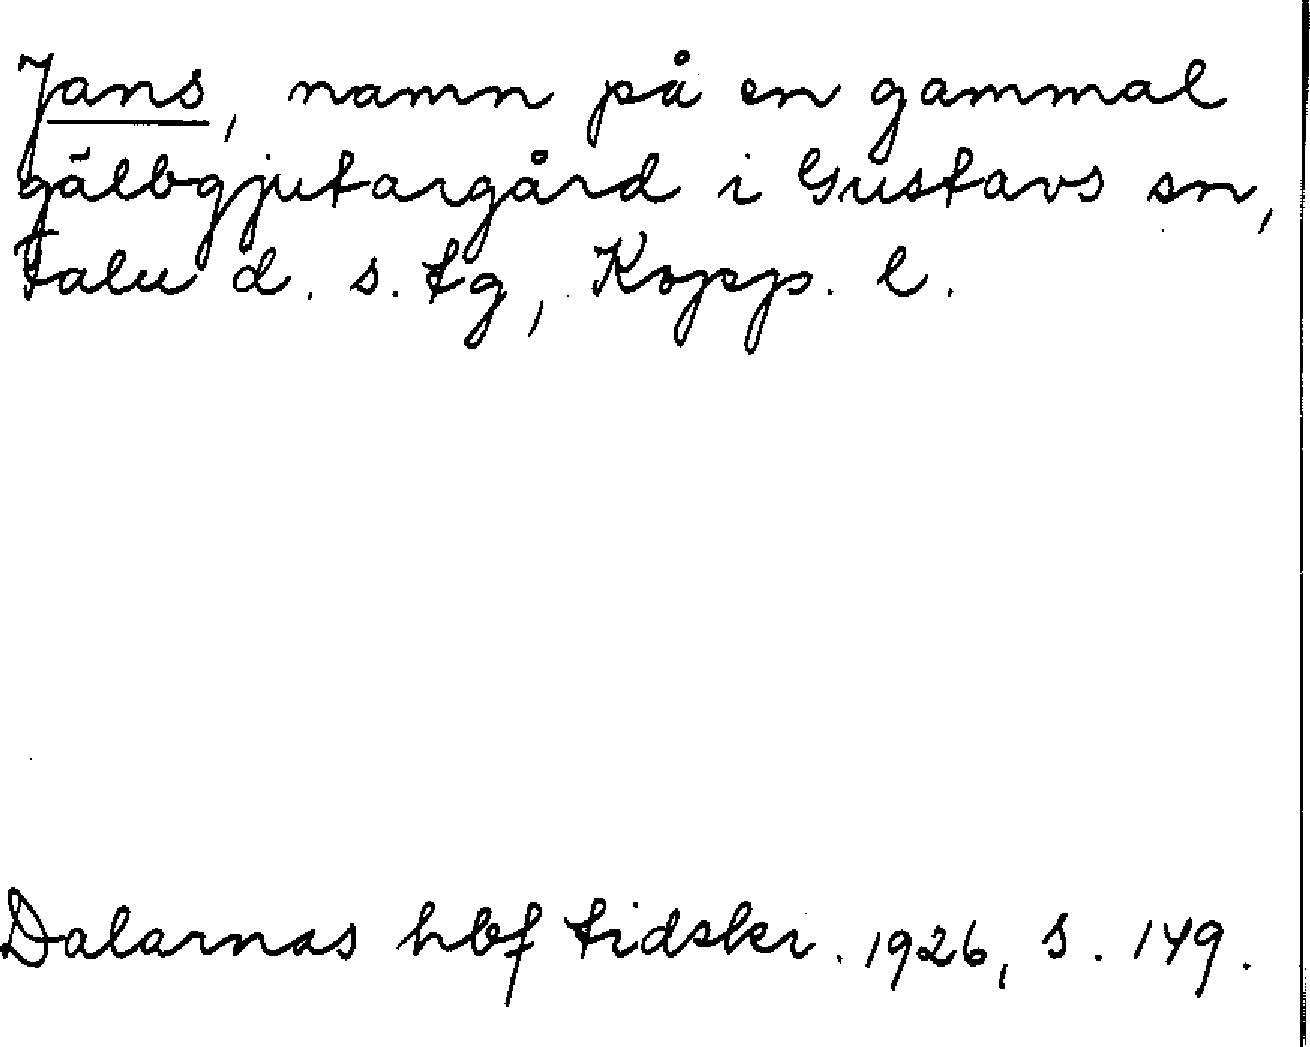 Jans, namn på en gammal
gälbgjutargård i Gustavs sn,
Falu d. s. tg, Kopp. l.
Dalarnas hbf tidskr. 1926, s. 149.